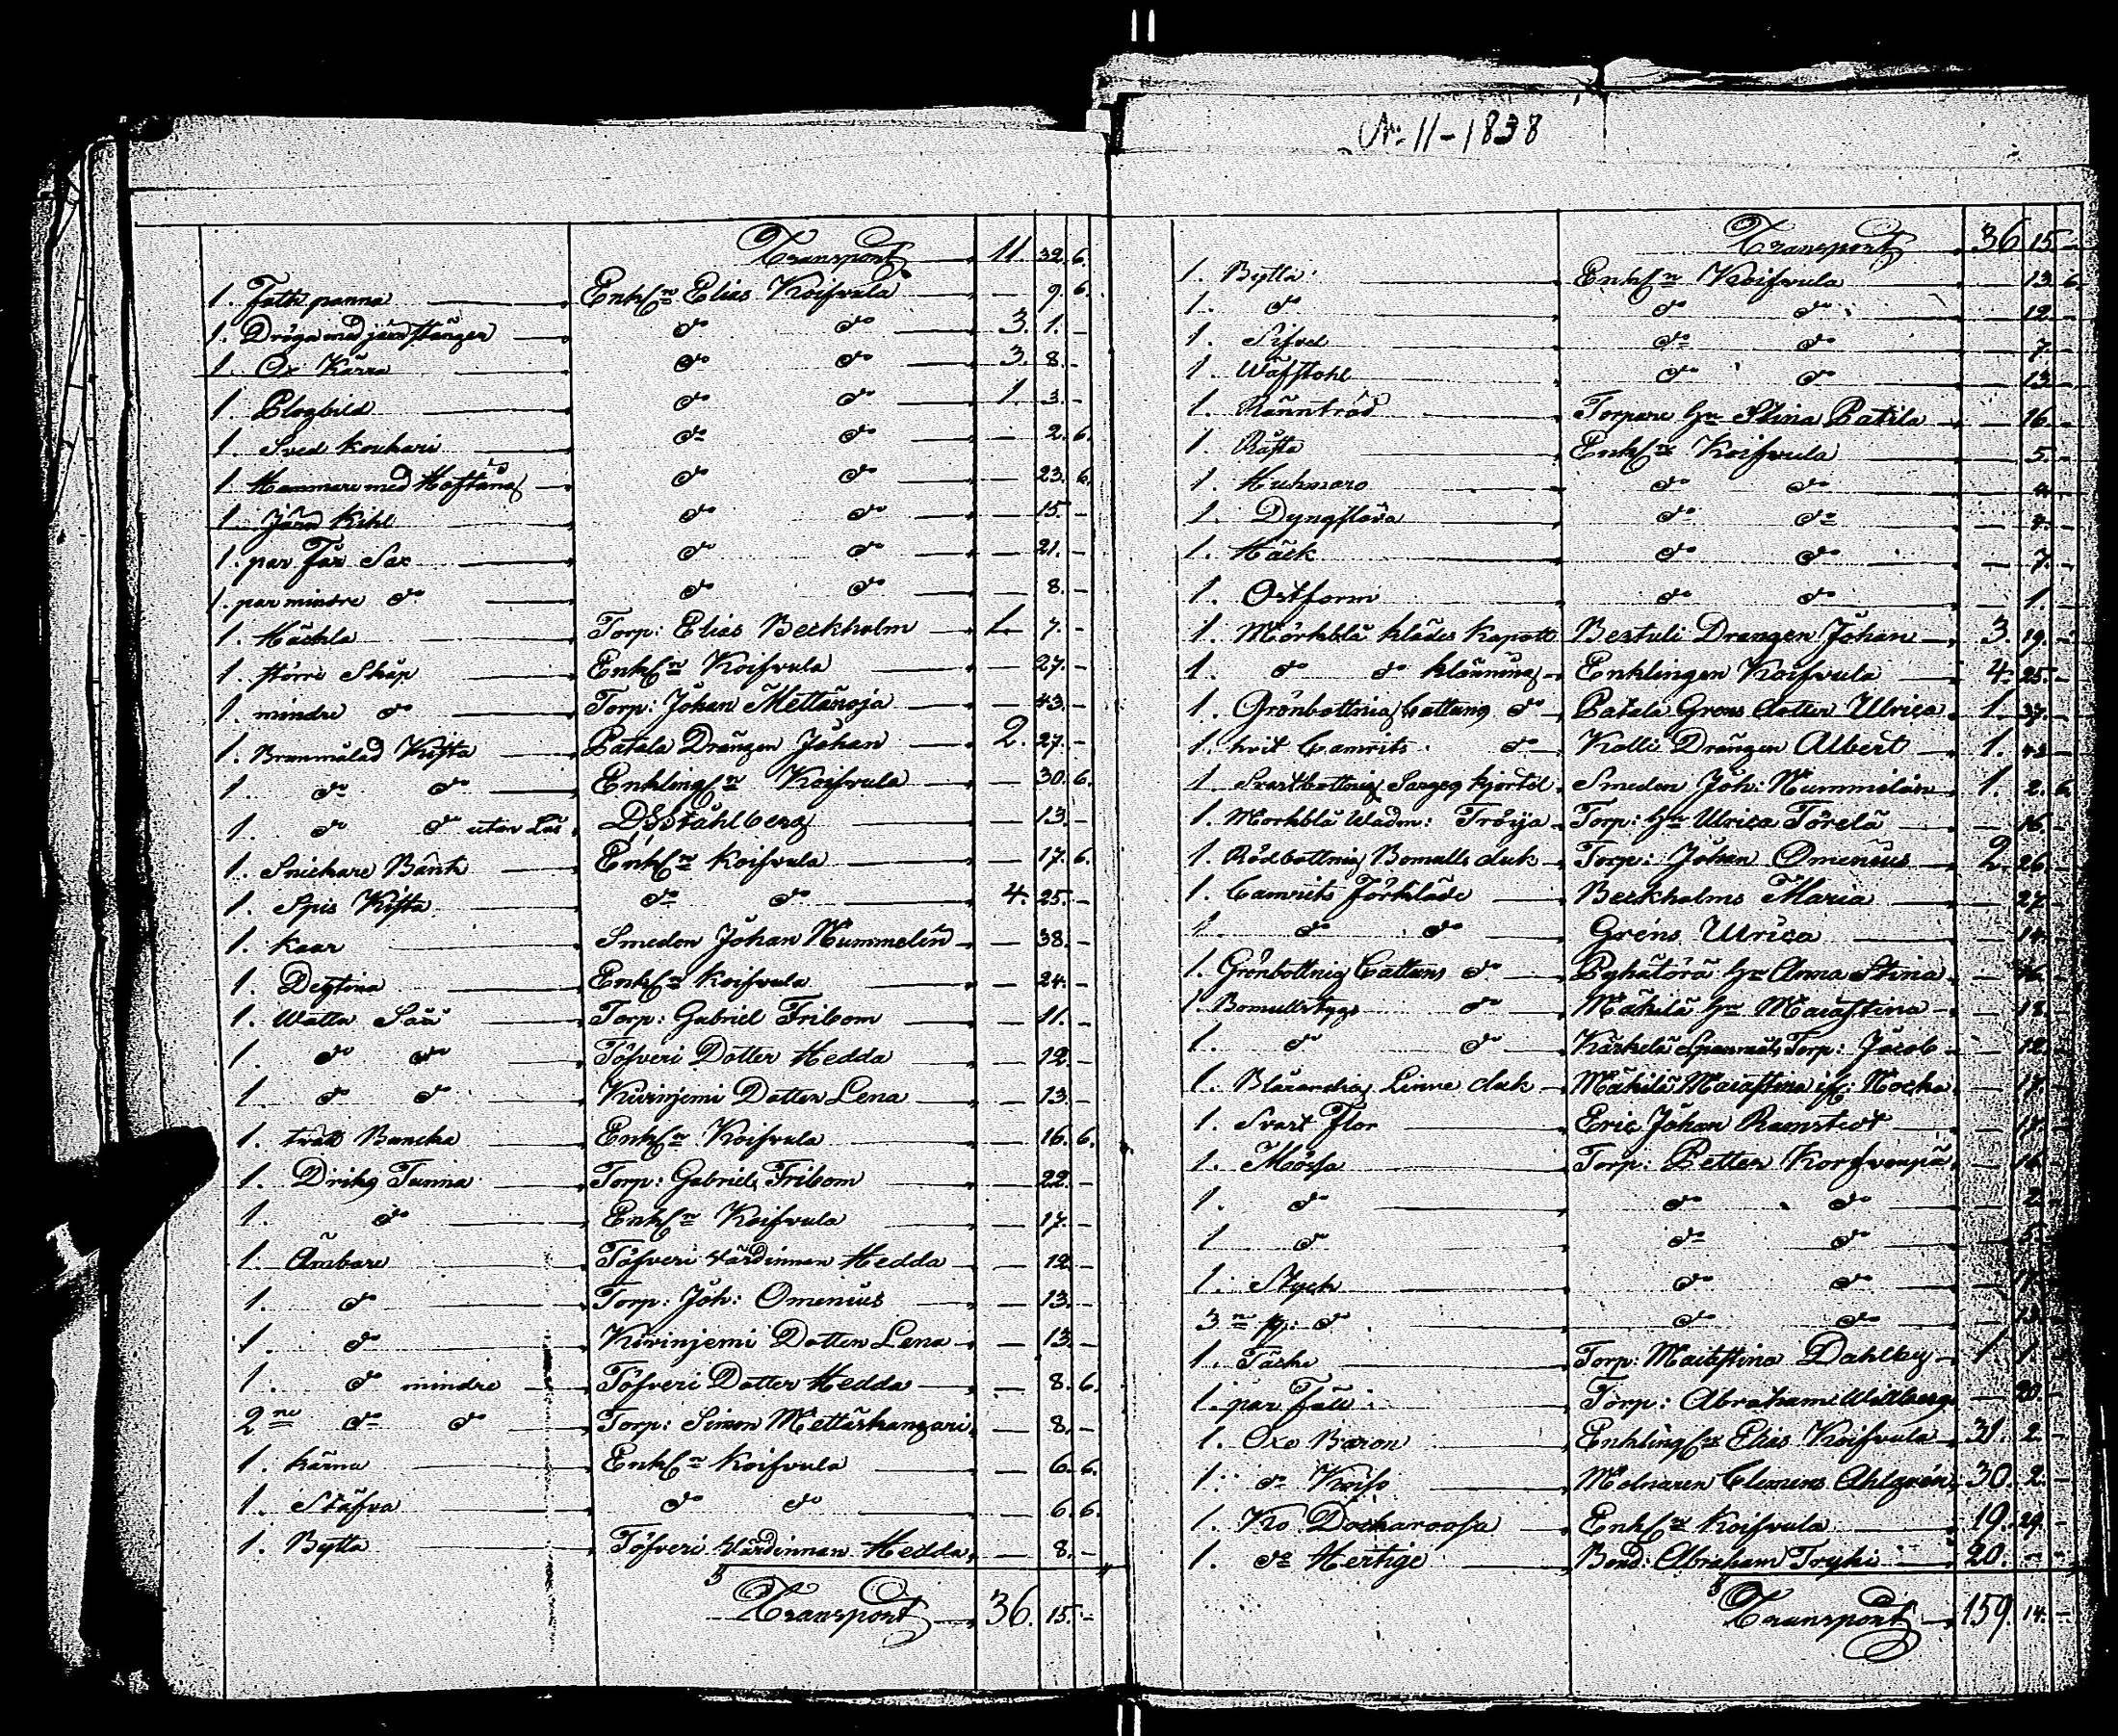 Transport 11. 32. 6.
1. Fatt panna Enkl:n Elias Koifvula — 9. 6.
1. Dröga med järnstänger do do 3. 1. -
1. Ox Kärra do do 3. 8. -
1. Plogbild do do 1. 3. -
1. Sved kouhari do do — 2. 6.
1. Hammare med Hoftång do do — 23. 6.
1. Järn Kihl do do — 15. -
1. par Får Sax do do — 21. -
1. par mindre do do do — 8. -
1. Häckla Torp: Elias Beckholm 1. 7. -
1. större Skåp Enkl:n Koifvula — 27. -
1. mindre do Torp: Johan Mettänoja — 43. -
1. Brunmålad Kista Patala Drängen Johan 2. 27. -
1. do do Enkling:n Koifvula — 30. 6.
1. do do utan Lås D: Ståhlberg — 13. -
1. Snickare Bänk Enkl:n Koifvula — 17. 6.
1. Spis Kista do do 4. 25. -
1. Kaar Smeden Johan Nummelin — 38. -
1. Degtina Enkl:n Koifvula — 24. -
1. Watta Såå Torp: Gabriel Fribom — 11. -
1. do do Töfveri Dotter Hedda — 12. -
1. do do Kivinjemi Dotter Lena — 13. -
1. tvätt Buncka Enkl:n Koifvula — 16. 6.
1. Dricks Tunna Torp: Gabriel Fribom — 22. -
1. do Enkl:n Koifvula — 17. -
1. Ämbare Töfveri Värdinnan Hedda — 12. -
1. do Torp: Joh: Omenius — 13. -
1. do Kivinjemi Dotter Lena — 13. -
1. do mindre Töfveri Dotter Hedda — 8. 6.
2ne do do Torp: Simon Mettäkangari — 8. -
1. kärna Enkl:n Koifvula — 6. 6.
1. Stäfva do do — 6. 6.
1. Bytta Töfveri Värdinnan Hedda — 8. -
Transport 36. 15. -
No 11-1838
Transport 36 15 -
1. Bytta Enkl:n Koifvula — 13. 6.
1. do do do — 12. -
1. Sifvel do do — 7. -
1. Wäfstohl do do — 13. -
1. Torpare H:n Stina Patila — 16. -
1. Räfta Enkl:n Koifvula — 5. -
1. Huhmaro do do
1. Dyngslöva do do
1. Häck do do — 7. -
1. Ostform do do — 1. -
1. Mörkblå klädes Kapott Bertuli Drangen Johan 3. 19. -
1. do do klänning Enklingen Koifvula 4. 25. -
1. Grönbottnig Cattuns do Patala Grens dotter Ulrica 1. 37. -
1. hvit Camrits do Kolli Drängen Albert 1.
1. Svartbottnig Sarges kjortel Smeden Joh: Nummelin 1. 2. 6.
1. Morkblå Wadm: Tröija Torp: H:n Ulrica Törelä — 16. -
1. Rödbottnig Bomulls duk Torp: Johan Omenius 2. 26. -
1. Camrits Förkläde Beckholms Maria — 27
1. do do Gréns Ulrica
1. Grönbottnig Cattuns do Pyhätörä H:n Anna Stina
1. Bomullstygs do Mäkilä H:n Maiastina — 18. -
1. do do Torp: Jacob — 12. -
1. Blårandig Linne duk Mäkilä Maiastina — 17. -
1. Svart Flor Eric Johan Ramstedt — 17. -
1. Mössa Torp: Petter
1. do do do
1. do do do
1. Styck do do
3ne st: do do do
1. Täcke Torp: Maiastina Dahlby 1. 1. -
1. par Torp: Abraham Widberg — 20. -
1. Oxe Baron Enkling:n Elias Koifvula 31. 2. -
1. do Molnaren Clemens Ahlgrén 30. 2. -
1. Ko Enkl:n Koifvula 19. 29. -
1. do Hertige Bond: Abraham Tryki 20. - -
Transport 159. 14. -